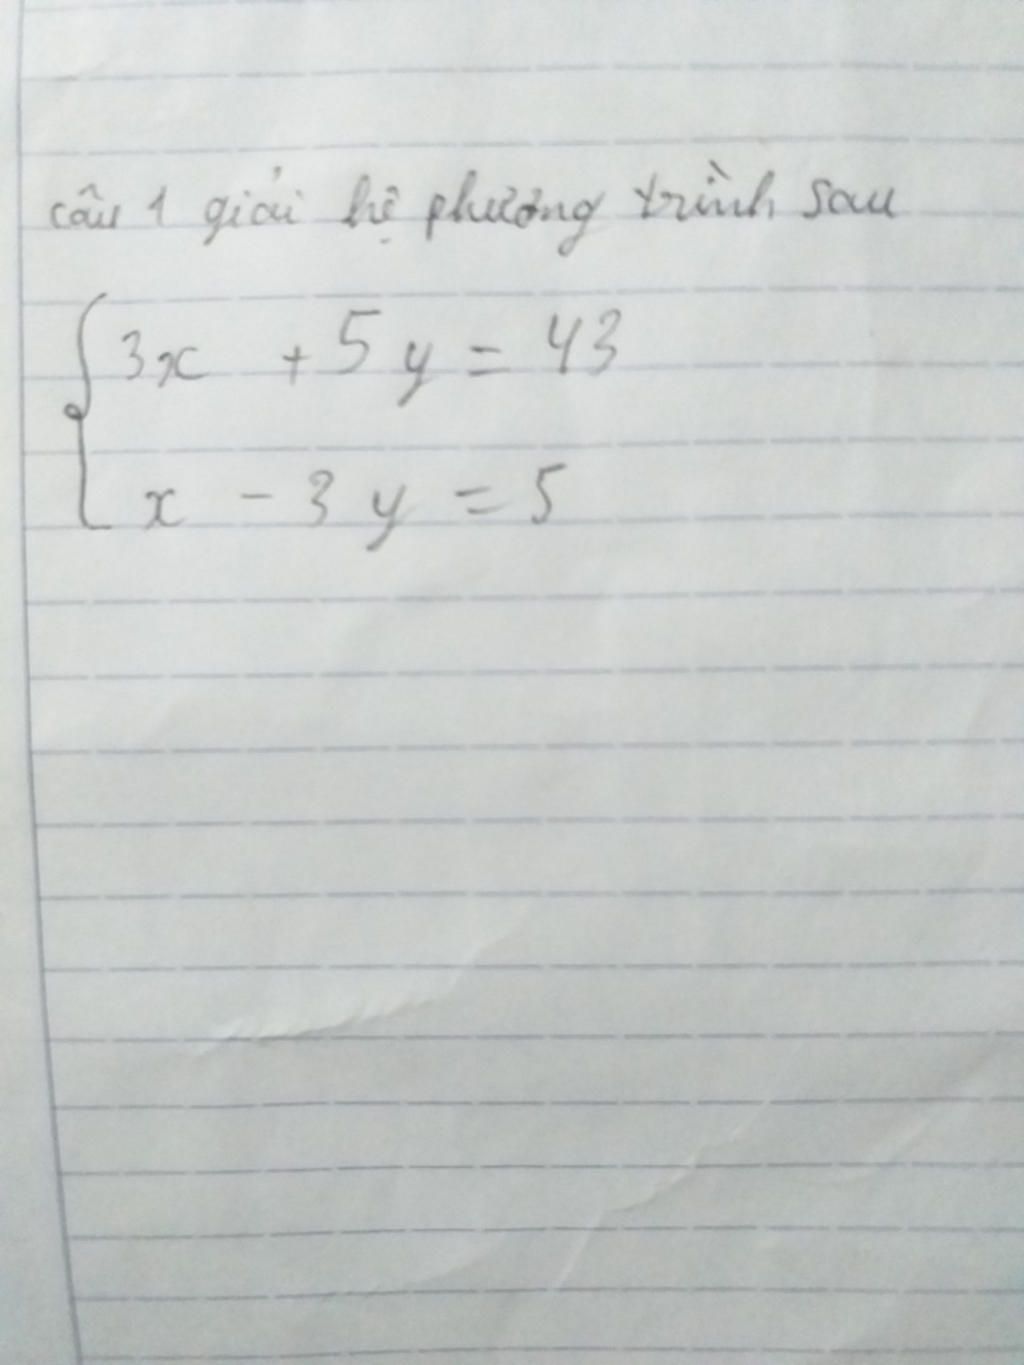 câu 1 giải hệ phương trình sau
{ 3x + 5y = 43
x - 3y = 5